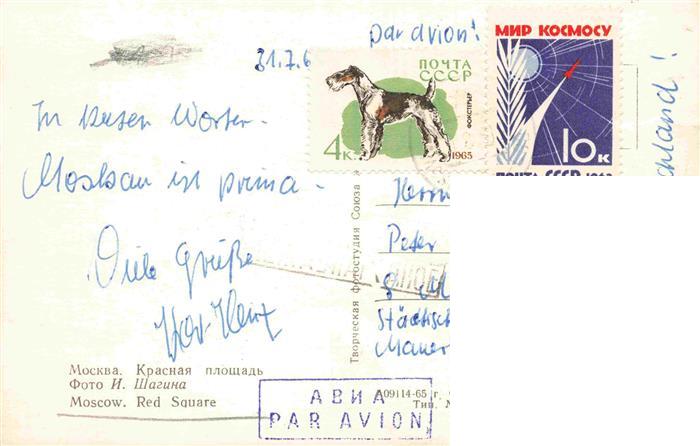 par avion!
31.7.6
ПОЧТА
СССР
4к
1965
ФОКСТЕРЬЕР
МИР КОСМОСУ
10к
ПОЧТА СССР 1963
chland!
In kurzen Worten -
Moskau ist prima -
Viele Grüße
Herrn
Peter
Städtisch
Mauer
Творческая Фотостудия Союза
Москва. Красная площадь
Фото И. Шагина
Moscow. Red Square
АВИА
PAR AVION
A09114-65 г.
Тип.